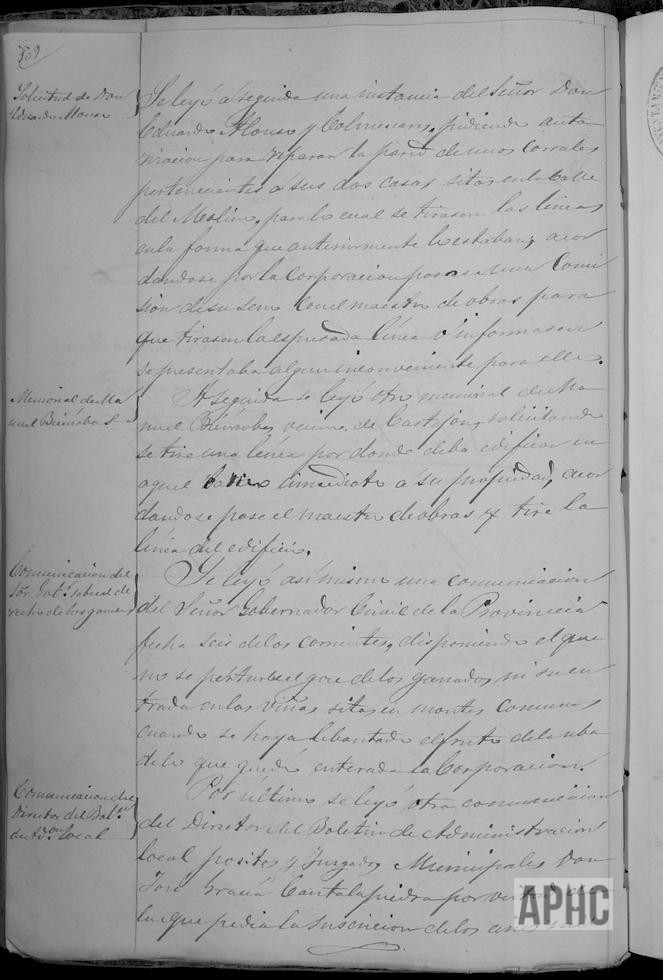 139
Solicitud de Don
Eduardo Alonso
Se leyó a seguida una instancia del Señor Don
Eduardo Alonso y Colmenares, pidiendo auto
rizacion para reparar la pared de unos Corrales
pertenecientes a sus dos casas sitas en la Calle
del Molino, para lo cual se tirasen las lineas
en la forma que anteriormente lo estaban; acor
dandose por la Corporacion pasase a una Comi
sion de su seno con el maestro de obras para
que tirasen la espresada línea é informasen
se presentaba algun inconveniente para ello.
Memorial de Ma
nuel
A seguida se leyó otro memorial de Ma
nuel vecino de Castejon, solicitando
se tire una línea por donde deba edificar en
aquel barrio inmediato a su propiedad, acor
dandose pase el maestro de obras y tire la
línea del edificio.
Comunicacion del
Sor. Gobr. sobre el de
recho de los ganados
Se leyó asímismo una comunicacion
del Señor Gobernador Civil de la Provincia
fecha seis de los corrientes, disponiendo el que
no se perturbe el goce de los ganados, ni su en
trada en las viñas sitas en montes comunes
cuando se haya lebantado el fruto de la uba
de lo que quedó enterada la Corporacion.
Comunicacion del
Director del Boln.
de Adon. local
Por ultimo se leyó otra comunicacion
del Director del Boletin de Administracion
local, positos y Juzgados Municipales Don
José Gracia Cantalapiedra por virtud de
la que pedia la suscricion de los
APHC